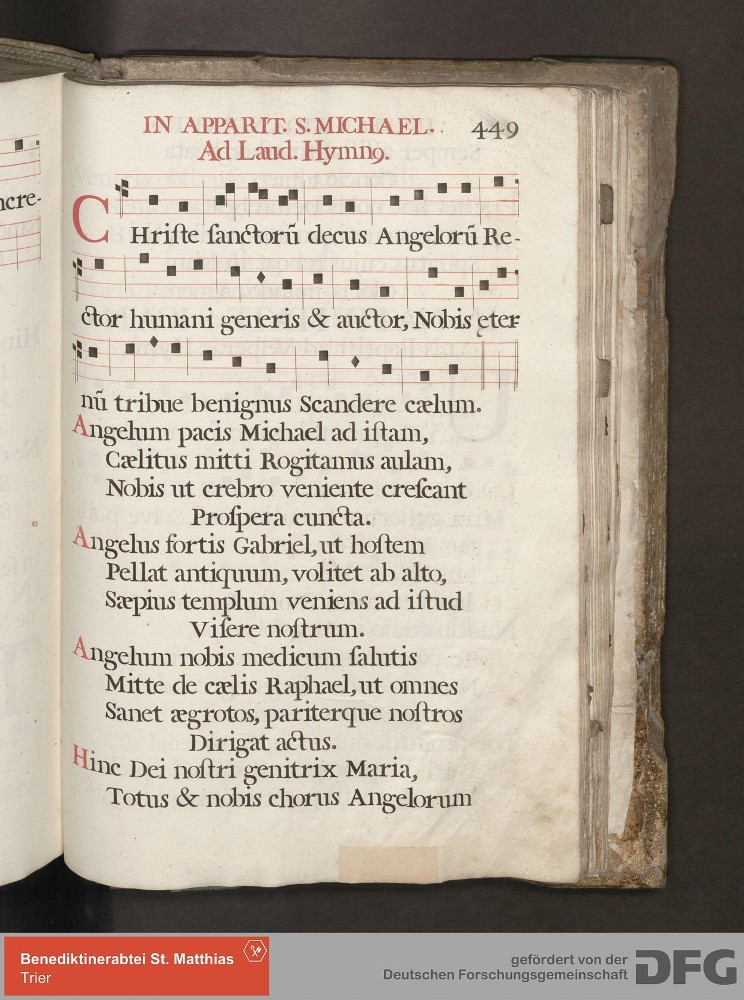 IN APPARIT. S. MICHAEL. 449
Ad Laud. Hymn9.
ncre-
CHriſte ſanctorū decus Angelorū Re-
ctor humani generis & auctor, Nobis eter-
nū tribue benignus Scandere cælum.
Angelum pacis Michael ad iſtam,
Cælitus mitti Rogitamus aulam,
Nobis ut crebro veniente creſcant
Proſpera cuncta.
Angelus fortis Gabriel, ut hoſtem
Pellat antiquum, volitet ab alto,
Sæpius templum veniens ad iſtud
Viſere noſtrum.
Angelum nobis medicum ſalutis
Mitte de cælis Raphael, ut omnes
Sanet ægrotos, pariterque noſtros
Dirigat actus.
Hinc Dei noſtri genitrix Maria,
Totus & nobis chorus Angelorum
Benediktinerabtei St. Matthias
Trier
gefördert von der
Deutschen Forschungsgemeinschaft
DFG